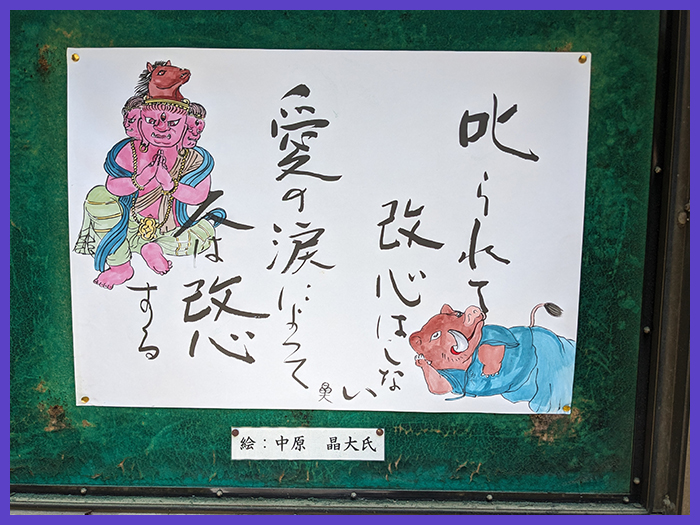 叱られて
改心はしな
い
愛の涙によって
人は改心
する
絵:中原 晶大氏